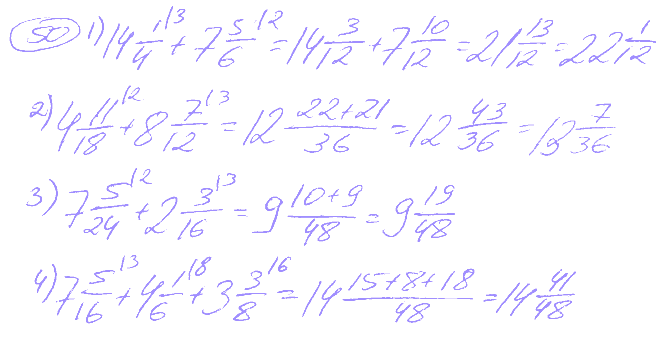 50 1) 14 1/4 \3 + 7 5/6 \2 = 14 3/12 + 7 10/12 = 21 13/12 = 22 1/12
2) 4 11/18 \2 + 8 7/12 \3 = 12 (22+21)/36 = 12 43/36 = 13 7/36
3) 7 5/24 \2 + 2 3/16 \3 = 9 (10+9)/48 = 9 19/48
4) 7 5/16 \3 + 4 1/6 \8 + 3 3/8 \6 = 14 (15+8+18)/48 = 14 41/48